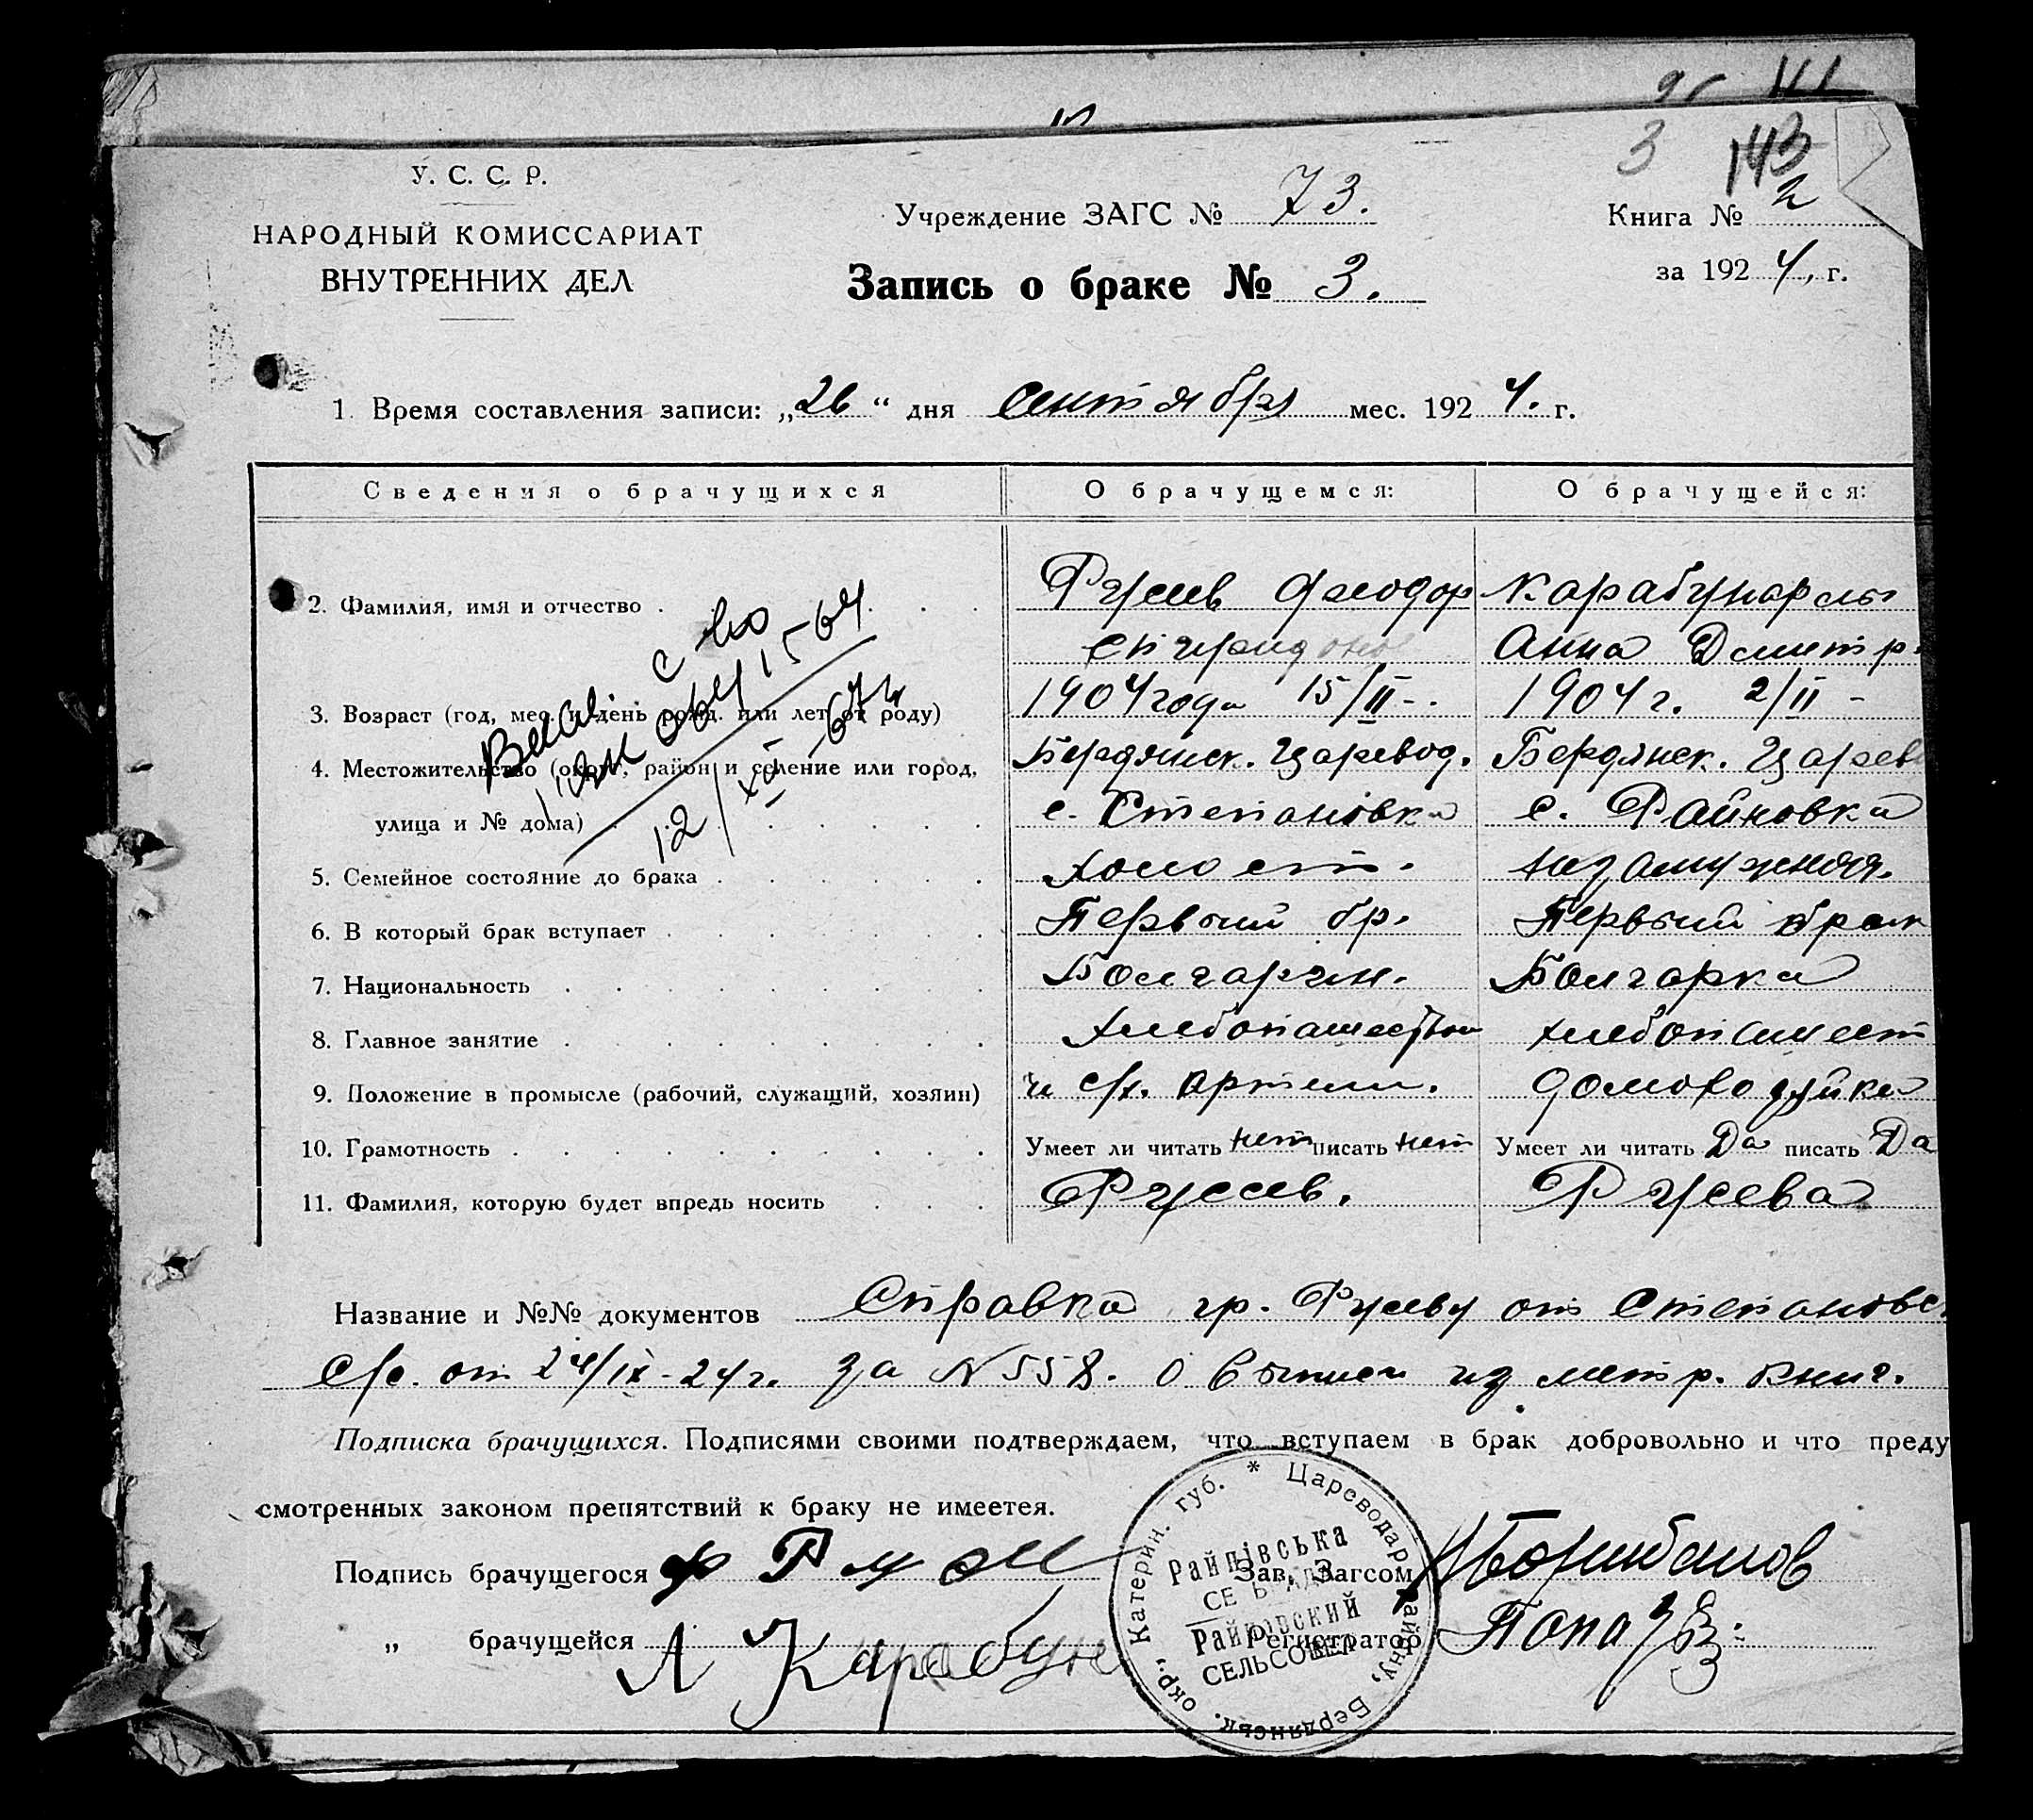 143
3
У. С. С. Р.
НАРОДНЫЙ КОМИССАРИАТ
ВНУТРЕННИХ ДЕЛ
Учреждение ЗАГС № 73.
Книга № 2
за 1924. г.
Запись о браке № 3.
1. Время составления записи: „26“ дня сентября мес. 1924. г.
Сведения о брачущихся О брачущемся: О брачущейся:
2. Фамилия, имя и отчество Русев Феодор Карабунарлы
Спиридонов Анна Дмитр.
3. Возраст (год, мес. и день рожд. или лет от роду) 1904 года 15/II-. 1904 г. 2/II -
4. Местожительство (округ, район и селение или город, Бердянск. Царевод. Бердянск. Царев
улица и № дома) с. Степановка с. Райновка
5. Семейное состояние до брака Холост. незамужняя.
6. В который брак вступает Первый бр. Первый брак
7. Национальность Болгарин. Болгарка
8. Главное занятие хлебопашество хлебопашест
9. Положение в промысле (рабочий, служащий, хозяин) ч с/х. артели. домохозяйка
10. Грамотность Умеет ли читать нет писать нет Умеет ли читать Да писать Да
11. Фамилия, которую будет впредь носить Русев. Русева
с-во
1564
12/XII-67г
Название и №№ документов Справка гр. Русеву от Степановск
с/с. от 24/IX-24г. за N 558. о выписи из метр. книг.
Подписка брачущихся. Подписями своими подтверждаем, что вступаем в брак добровольно и что преду
смотренных законом препятствий к браку не имеется.
Подпись брачущегося Зав. Загсом
„ брачущейся А Карабун Регистратор
Катерин. губ. * Цареводар. району, Бердянськ. окр.,
Райнівська
Райновский
СЕЛЬСОВЕТ